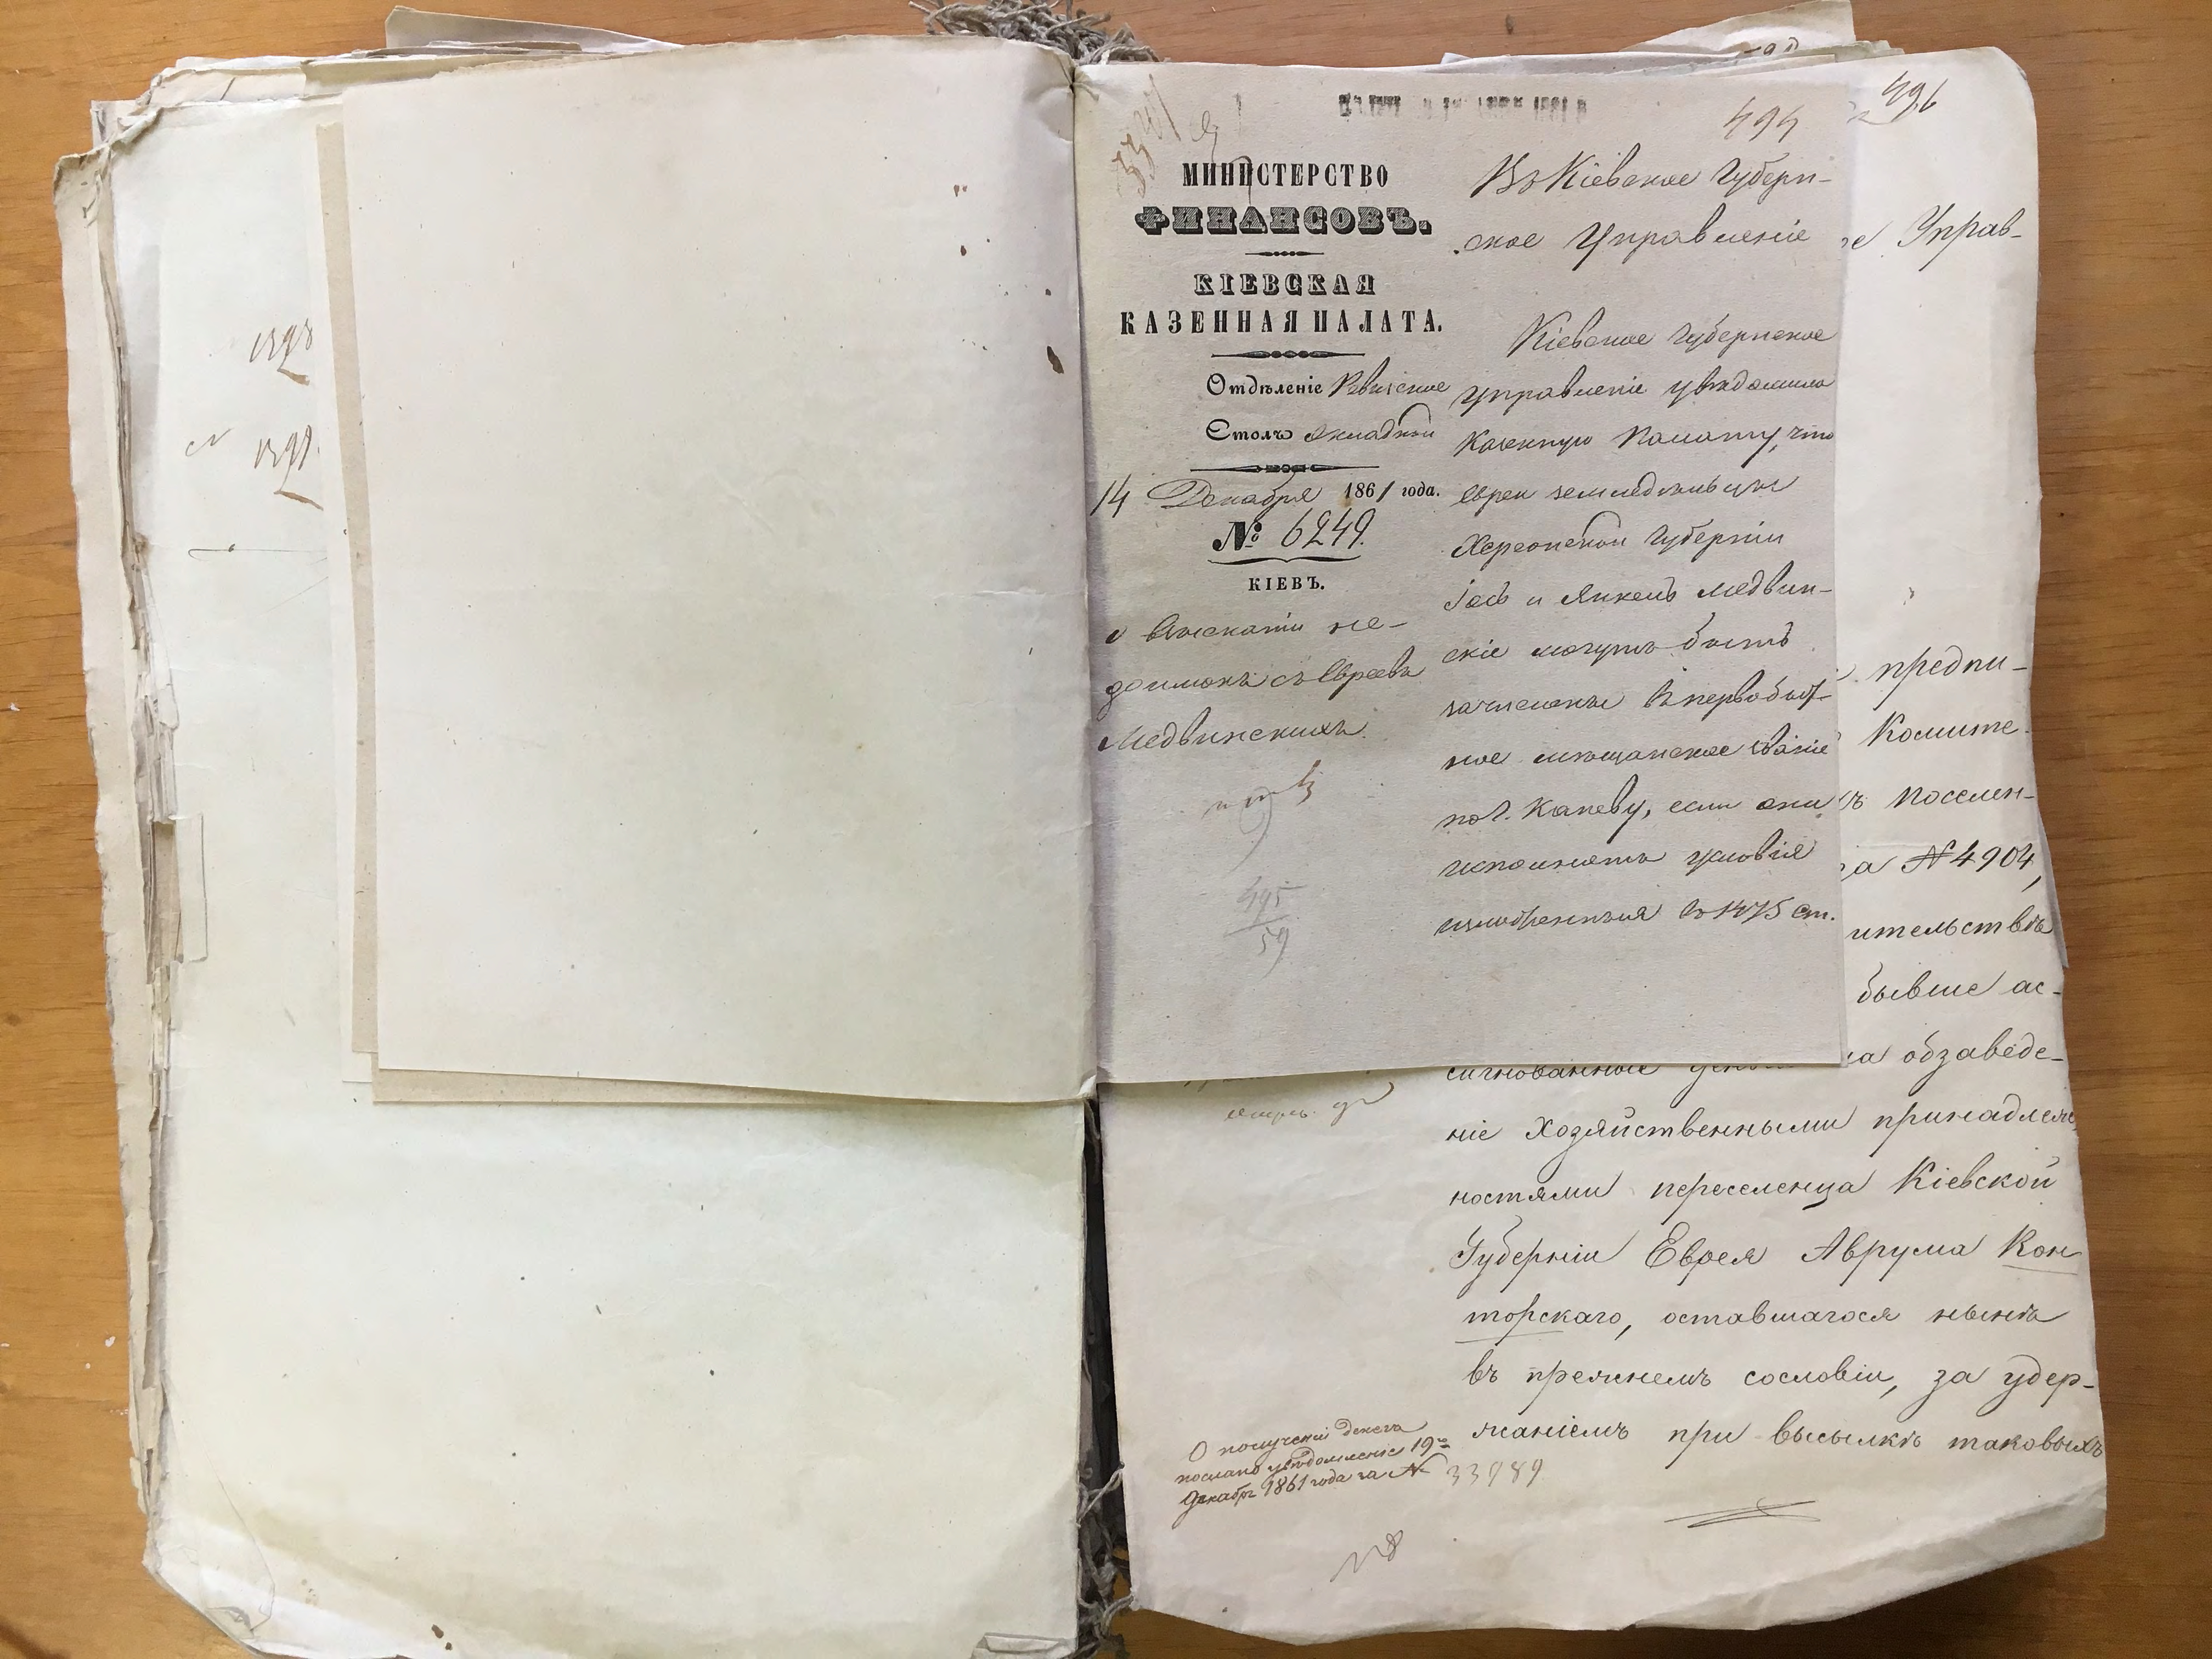 494
МИНИСТЕРСТВО
ФИНАНСОВЪ.
КІЕВСКАЯ
КАЗЕННАЯ ПАЛАТА.
Отдѣленіе Ревизское
Столъ Окладной
14 Декабря 1861 года.
№ 6249.
КІЕВЪ.
о взысканіи не-
доимокъ съ Евреевъ
Медвинскихъ.
495
59
Въ Кіевское Губерн-
ское Управленіе
Кіевское Губернское
Управленіе увѣдомило
Казенную Палату, что
евреи земледѣльцы
Херсонской Губерніи
Іось и Янкель Медвин-
скіе могутъ быть
зачислены въ первобыт-
ное мѣщанское званіе
по г. Каневу, если они
исполнятъ условія
изложенныя въ 1475 ст.
496
Управ-
предпи-
Комите
Поселен-
№ 4904,
ительствѣ
бывше ас-
сигнованные на обзаведе-
ніе хозяйственными принадлеж
ностями переселенца Кіевской
Губерніи Еврея Аврума Кон
торскаго, оставшагося нынѣ
въ прежнемъ сословіи, за удер-
жаніемъ при высылкѣ таковыхъ
О полученіи денегъ
послано увѣдомленіе 19го
Декабря 1861 года за № 33989